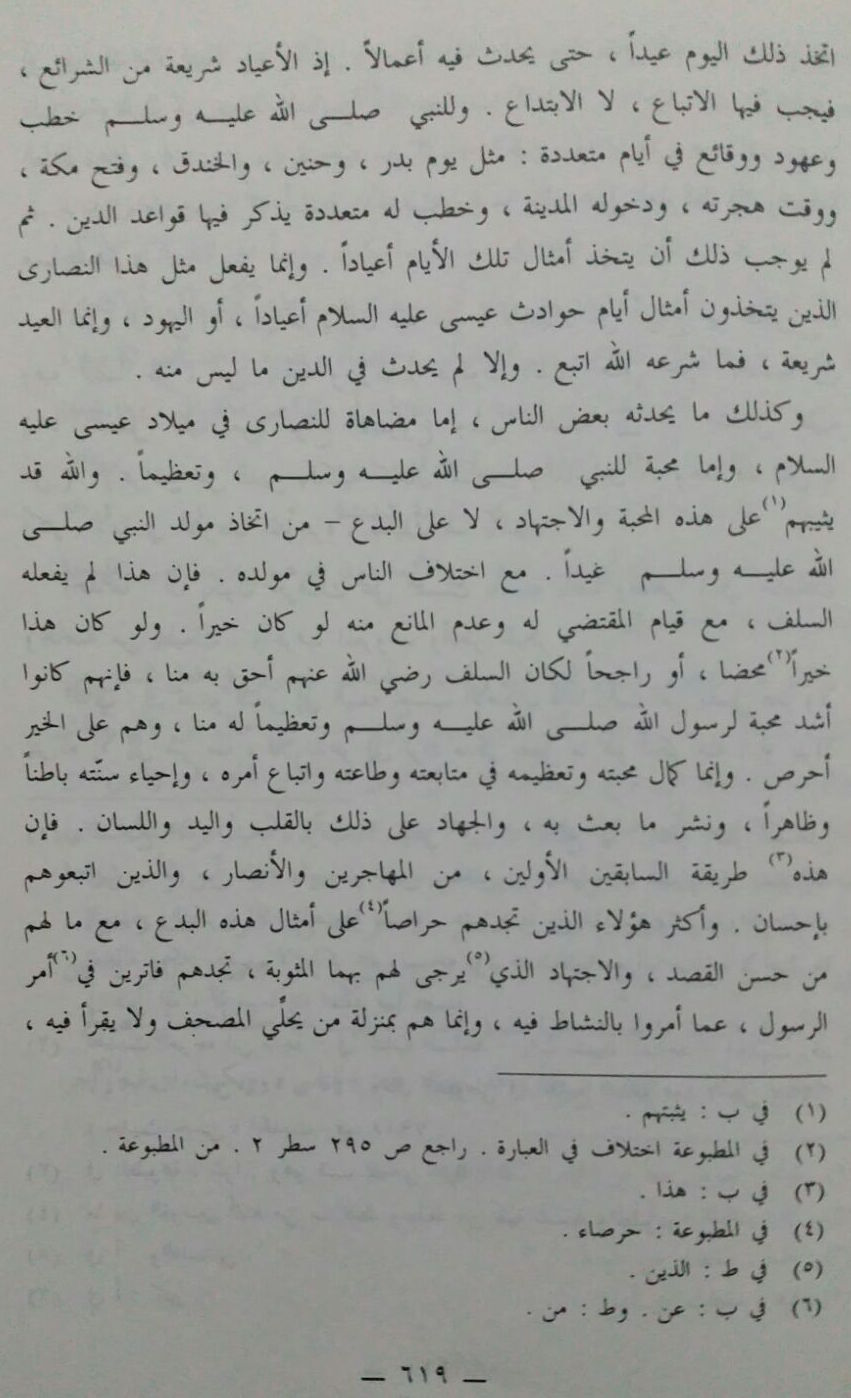 اتخذ ذلك اليوم عيداً ، حتى يحدث فيه أعمالاً . إذ الأعياد شريعة من الشرائع ،
فيجب فيها الاتباع ، لا الابتداع . وللنبي صلى الله عليه وسلم خطب
وعهود ووقائع في أيام متعددة : مثل يوم بدر ، وحنين ، والخندق ، وفتح مكة ،
ووقت هجرته ، ودخوله المدينة ، وخطب له متعددة يذكر فيها قواعد الدين . ثم
لم يوجب ذلك أن يتخذ أمثال تلك الأيام أعياداً . وإنما يفعل مثل هذا النصارى
الذين يتخذون أمثال أيام حوادث عيسى عليه السلام أعياداً ، أو اليهود ، وإنما العيد
شريعة ، فما شرعه الله اتبع . وإلا لم يحدث في الدين ما ليس منه .
وكذلك ما يحدثه بعض الناس ، إما مضاهاة للنصارى في ميلاد عيسى عليه
السلام ، وإما محبة للنبي صلى الله عليه وسلم ، وتعظيماً . والله قد
يثيبهم(١) على هذه المحبة والاجتهاد ، لا على البدع – من اتخاذ مولد النبي صلى
الله عليه وسلم غيداً . مع اختلاف الناس في مولده . فإن هذا لم يفعله
السلف ، مع قيام المقتضي له وعدم المانع منه لو كان خيراً . ولو كان هذا
خيراً(٢) محضا ، أو راجحاً لكان السلف رضي الله عنهم أحق به منا ، فإنهم كانوا
أشد محبة لرسول الله صلى الله عليه وسلم وتعظيماً له منا ، وهم على الخير
أحرص . وإنما كمال محبته وتعظيمه في متابعته وطاعته واتباع أمره ، وإحياء سنّته باطناً
وظاهراً ، ونشر ما بعث به ، والجهاد على ذلك بالقلب واليد واللسان . فإن
هذه(٣) طريقة السابقين الأولين ، من المهاجرين والأنصار ، والذين اتبعوهم
بإحسان . وأكثر هؤلاء الذين تجدهم حراصاً(٤) على أمثال هذه البدع ، مع ما لهم
من حسن القصد ، والاجتهاد الذي(٥) يرجى لهم بهما المثوبة ، تجدهم فاترين في(٦) أمر
الرسول ، عما أمروا بالنشاط فيه ، وإنما هم بمنزلة من يحلّي المصحف ولا يقرأ فيه ،
(١) في ب : يثبتهم .
(٢) في المطبوعة اختلاف في العبارة . راجع ص ٢٩٥ سطر ٢ . من المطبوعة .
(٣) في ب : هذا .
(٤) في المطبوعة : حرصاء .
(٥) في ط : الذين .
(٦) في ب : عن . وط : من .
— ٦١٩ —